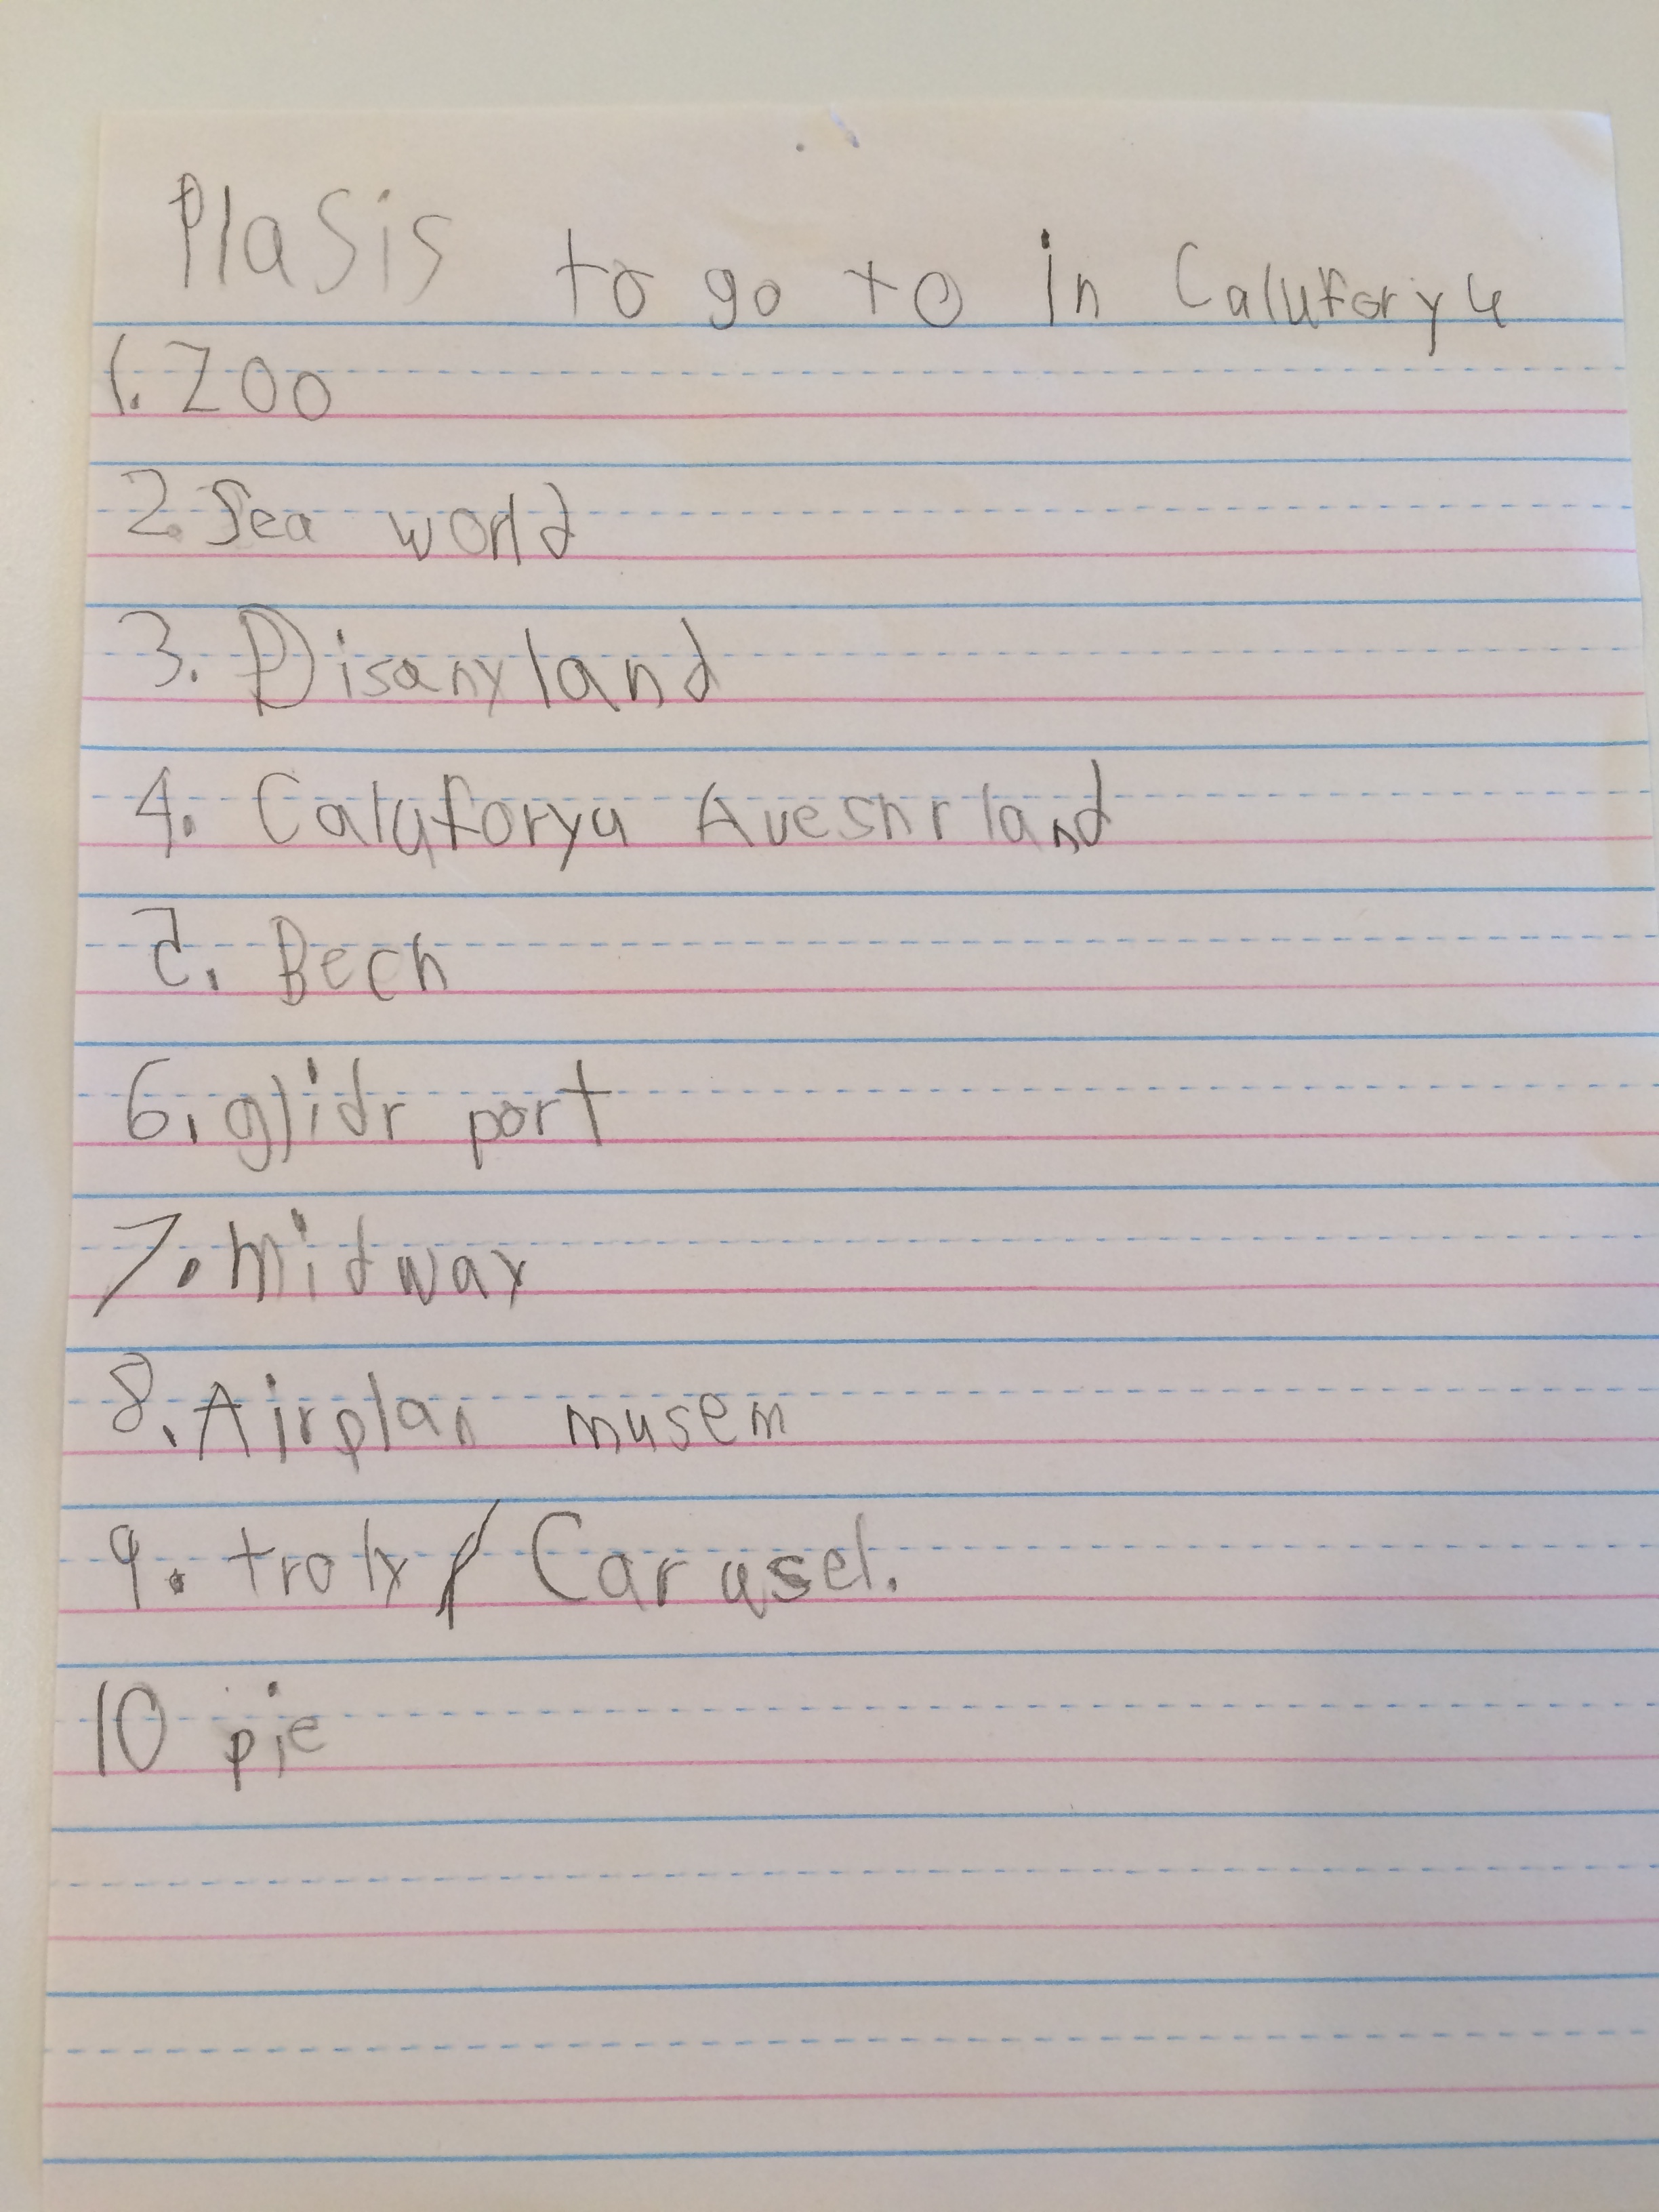 PlaSis to go to in Caluforyu
1. Zoo
2. Sea world
3. Disanyland
4. Caluforyu Avesnrland
5. Bech
6. glidr port
7. midway
8. Airplan musem
9. troly / Carusel.
10 pie